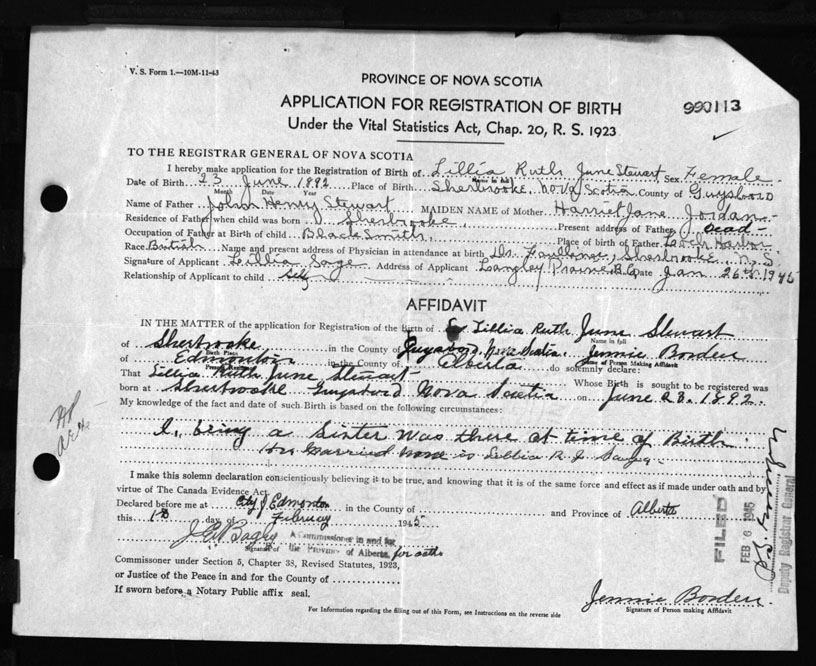 V. S. Form 1.—10M-11-43
PROVINCE OF NOVA SCOTIA
APPLICATION FOR REGISTRATION OF BIRTH
990113
Under the Vital Statistics Act, Chap. 20, R. S. 1923
TO THE REGISTRAR GENERAL OF NOVA SCOTIA
I hereby make application for the Registration of Birth of Lillia Ruth June Stewart Sex Female
Name in full
Date of Birth 23 June 1892 Place of Birth Sherbrooke, Nova Scotia County of Guysboro
Month Date Year
Name of Father John Henry Stewart MAIDEN NAME of Mother Harriet Jane Jordan
Residence of Father when child was born Sherbrooke, Present address of Father dead
Occupation of Father at Birth of child Blacksmith, Place of birth of Father Harbor
Race British Name and present address of Physician in attendance at birth Dr. Sherbrooke N.S.
Signature of Applicant Lillia Sage Address of Applicant Langley Prairie B.C. Date Jan 26, 1945
Relationship of Applicant to child Self
AFFIDAVIT
IN THE MATTER of the application for Registration of the birth of Lillia Ruth June Stewart
Name in full
of Sherbrooke in the County of Guysboro, Nova Scotia, Jennie Borden
Birth Place Name of Person Making Affidavit
of Edmonton in the County of Alberta do solemnly declare:
That Lillia Ruth June Stewart Whose Birth is sought to be registered was
born at Sherbrooke Guysboro Nova Scotia on June 23. 1892.
My knowledge of the fact and date of such Birth is based on the following circumstances:
I, being a Sister Was there at time of Birth
Her Married name is Lillia R. J. Sage
I make this solemn declaration conscientiously believing it to be true, and knowing that it is of the same force and effect as if made under oath and by
virtue of The Canada Evidence Act.
Declared before me at City of Edmonton in the County of and Province of Alberta
this 1st day of February 1945
A Commissioner in and for
Signature of the Province of Alberta, for oaths
Commissioner under Section 5, Chapter 33, Revised Statutes, 1923,
or Justice of the Peace in and for the County of
If sworn before a Notary Public affix seal.
Jennie Borden
Signature of Person making Affidavit
For Information regarding the filling out of this Form, see Instructions on the reverse side
FILED
FEB 6 1945
Deputy Registrar General